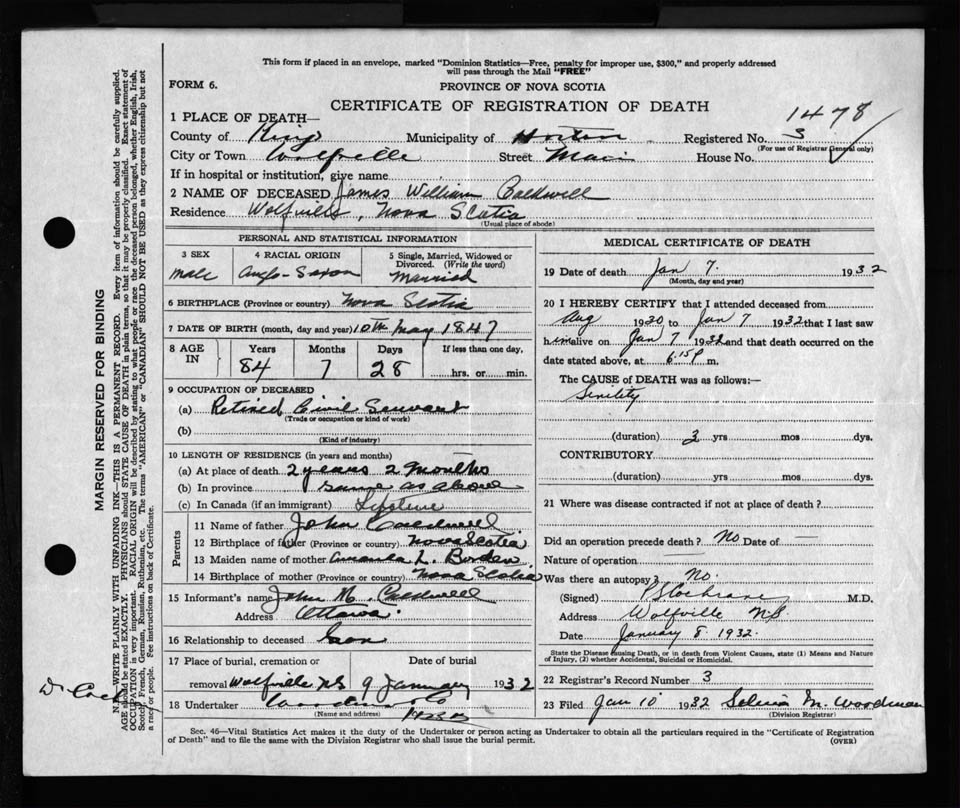 This form if placed in an envelope, marked "Dominion Statistics—Free, penalty for improper use, $300," and properly addressed
will pass through the Mail "FREE"
FORM 6.
PROVINCE OF NOVA SCOTIA
CERTIFICATE OF REGISTRATION OF DEATH
1478
1 PLACE OF DEATH—
County of Kings Municipality of Horton Registered No. 3
(For use of Registrar General only)
City or Town Wolfville Street Main House No.
If in hospital or institution, give name
2 NAME OF DECEASED James William Caldwell
Residence Wolfville, Nova Scotia
(Usual place of abode)
PERSONAL AND STATISTICAL INFORMATION
3 SEX
Male
4 RACIAL ORIGIN
Anglo-Saxon
5 Single, Married, Widowed or
Divorced. (Write the word)
Married
6 BIRTHPLACE (Province or country) Nova Scotia
7 DATE OF BIRTH (month, day and year) 10th May 1847
8 AGE IN
Years Months Days If less than one day,
84 7 28 hrs. or min.
9 OCCUPATION OF DECEASED
(a) Retired Civil Servant
(Trade or occupation or kind of work)
(b)
(Kind of industry)
10 LENGTH OF RESIDENCE (in years and months)
(a) At place of death 2 years 2 months
(b) In province same as above
(c) In Canada (if an immigrant) Lifetime
Parents
11 Name of father John Caldwell
12 Birthplace of father (Province or country) Nova Scotia
13 Maiden name of mother Amanda L. Borden
14 Birthplace of mother (Province or country) Nova Scotia
15 Informant's name John M. Caldwell
Address Ottawa.
16 Relationship to deceased Son
17 Place of burial, cremation or Date of burial
removal Wolfville NS 9 January 1932
18 Undertaker
(Name and address)
MEDICAL CERTIFICATE OF DEATH
19 Date of death Jan 7. 1932
(Month, day and year)
20 I HEREBY CERTIFY that I attended deceased from
Aug 1930 to Jan 7 1932 that I last saw
him alive on Jan 7 1932 and that death occurred on the
date stated above, at 6.15 P. m.
The CAUSE of DEATH was as follows:—
Senility
(duration) 3 yrs mos dys.
CONTRIBUTORY
(duration) yrs mos dys.
21 Where was disease contracted if not at place of death?
Did an operation precede death? No Date of —
Nature of operation —
Was there an autopsy? No.
(Signed) Cochrane M.D.
Address Wolfville N.S
Date January 8. 1932.
State the Disease causing Death, or in death from Violent Causes, state (1) Means and Nature
of Injury, (2) whether Accidental, Suicidal or Homicidal.
22 Registrar's Record Number 3
23 Filed Jan 10 1932 Selina M. Woodman
(Division Registrar)
Sec. 46—Vital Statistics Act makes it the duty of the Undertaker or person acting as Undertaker to obtain all the particulars required in the "Certificate of Registration
of Death" and to file the same with the Division Registrar who shall issue the burial permit.
(OVER)
MARGIN RESERVED FOR BINDING
N. B.—WRITE PLAINLY WITH UNFADING INK—THIS IS A PERMANENT RECORD. Every item of information should be carefully supplied.
AGE should be stated EXACTLY. PHYSICIANS should STATE CAUSE OF DEATH in plain terms, so that it may be properly classified. Exact statement of
OCCUPATION is very important. RACIAL ORIGIN will be described by stating to what people or race the deceased person belonged, whether English, Irish,
Scotch, French, German, Russian, Ruthenian, etc. The terms "AMERICAN" or "CANADIAN" SHOULD NOT BE USED as they express citizenship but not
a race or people. See instructions on back of Certificate.